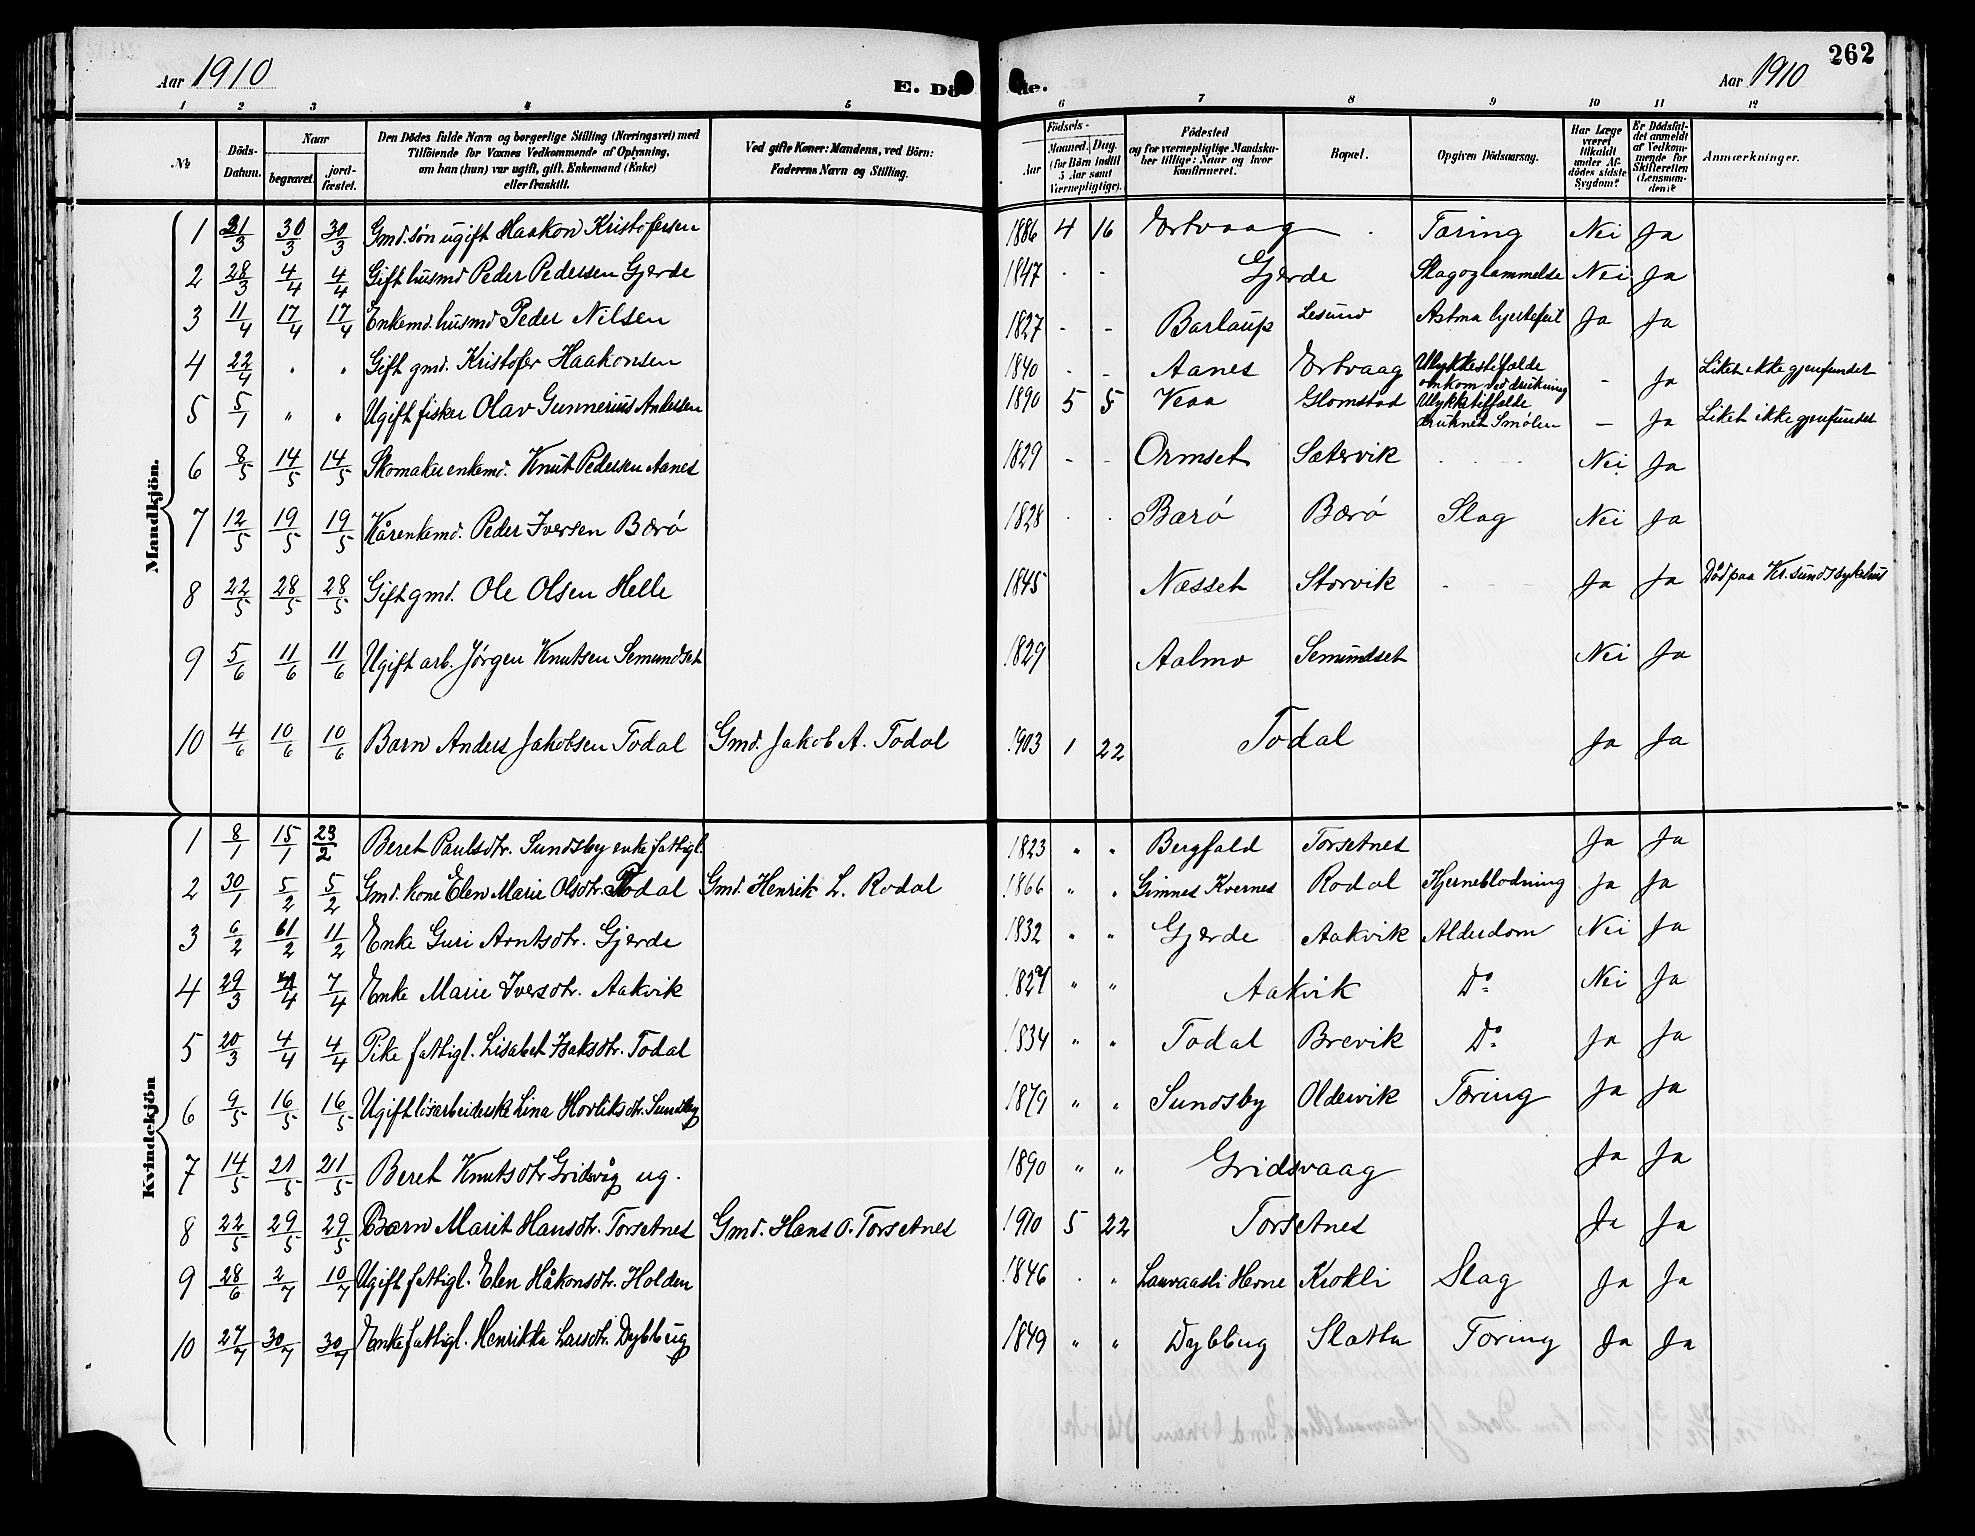 262
Aar 1910 E. Dö de. Aar 1910
1 2 3 4 5 6 7 8 9 10 11 12
№ Döds-Datum. Naar begravet. jordfæstet. Den Dödes fulde Navn og borgerlige Stilling (Næringsvei) med Tilföiende for Voxnes Vedkommende af Oplysning, om han (hun) var ugift, gift, Enkemand (Enke) eller fraskilt. Ved gifte Koner: Mandens, ved Börn: Faderens Navn og Stilling. Födsels- Aar Maaned. Dag. (for Börn indtil 5 Aar samt Værnepligtige). Födested og for værnepligtige Mandskaber tillige: Naar og hvor konfirmeret. Bopæl. Opgiven Dödsaarsag. Har Læge været tilkaldt under Afdödes sidste Sygdom? Er Dödsfaldet anmeldt af Vedkommende for Skifteretten (Lensmanden)? Anmærkninger.
Mandkjön.
1 21/3 30/3 30/3 Gmd. søn ugift Haakon Kristofersen 1886 4 16 Ertvaag Tæring Nei Ja
2 28/3 4/4 4/4 Gift husmd Peder Pedersen Gjerde 1847 - - Gjerde Slag og lammelse Nei Ja
3 11/4 17/4 17/4 Enkemd. husmd Peder Nilsen 1827 - - Barlaup Lesund Astma hjertefeil Ja Ja
4 22/4 " " Gift gmd. Kristofer Haakonsen 1840 - - Aanes Ertvaag Ulykkestilfælde omkom ved drukning - Ja Liket ikke gjenfundet
5 5/1 " " Ugift fisker Olav Gunnerius Andersen 1890 5 5 Veaa Glomstad Ulykkestilfælde druknet Smølen - Ja Liket ikke gjenfundet
6 8/5 14/5 14/5 Skomaker enkemd. Knut Pedersen Aanes 1829 - - Ormset Sætervik - - Nei Ja
7 12/5 19/5 19/5 Kårenkemd. Peder Iversen Bærø 1828 - - Bærø Bærø Slag Nei Ja
8 22/5 28/5 28/5 Gift gmd. Ole Olsen Helle 1845 Næsset Storvik - - Ja Ja Død paa Kr.sunds sykehus
9 5/6 11/6 11/6 Ugift arb. Jørgen Knutsen Semundset 1829 Aalmo Semundset Nei Ja
10 4/6 10/6 10/6 Barn Anders Jakobsen Todal Gmd. Jakob A. Todal 1903 1 22 Todal Ja Ja
Kvindekjön
1 8/1 15/1 23/2 Beret Paulsdtr. Sundsby enke fattigl. 1823 " " Bergfald Torsetnes Ja Ja
2 30/1 5/2 5/2 Gmd. kone Elen Marie Olsdtr. Rodal Gmd. Henrik L. Rodal 1866 " " Gimnes Kvernes Rodal Hjerneblødning Ja Ja
3 6/2 11/2 11/2 Enke Guri Arntsdtr. Gjerde 1832 " " Gjerde Aakvik Alderdom Nei Ja
4 29/3 7/4 7/4 Enke Marie Iversdtr. Aakvik 1827 " " Aakvik Do Nei Ja
5 20/3 4/4 4/4 Pike fattigl. Lisabet Isaksdtr. Todal 1834 " " Todal Brevik Do Ja Ja
6 9/5 16/5 16/5 Ugift løsarbeiderske Lina Hovliksdtr. Sundsby 1879 " " Sundsby Oldervik Tæring Ja Ja
7 14/5 21/5 21/5 Beret Knutsdtr Gridsvåg ug. 1890 " " Gridsvaag Ja Ja
8 22/5 29/5 29/5 Barn Marit Hansdtr. Torsetnes Gmd. Hans O. Torsetnes 1910 5 22 Torsetnes Ja Ja
9 28/6 2/7 10/7 Ugift fattigl. Elen Håkonsdtr. Holden 1846 " " Lauvaasli Hevne Krokli Slag Ja Ja
10 27/7 30/7 30/7 Enke fattigl. Henrikke Larsdtr. Dybbug 1849 " " Dybbug Slættu Tæring Ja Ja